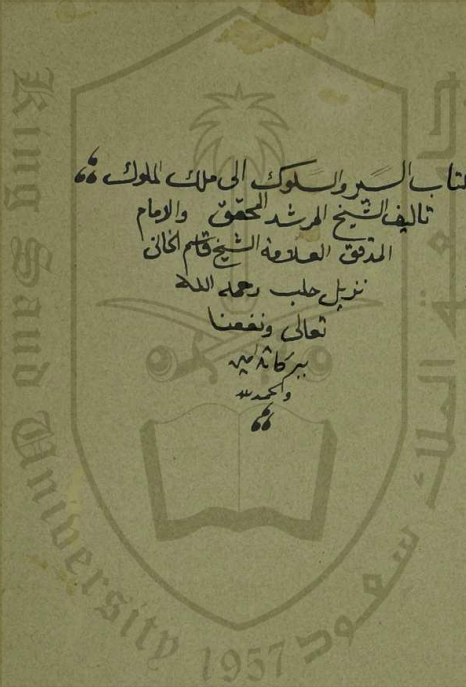 كتاب السير والسلوك الى ملك الملوك
تاليف الشيخ المرشد المحقق والامام
المدقق العلامة الشيخ قاسم الخانى
نزيل حلب رحمه الله
تعالى ونفعنا
ببركاته امين
والحمد لله
King Saud University
جامعة الملك سعود
1957